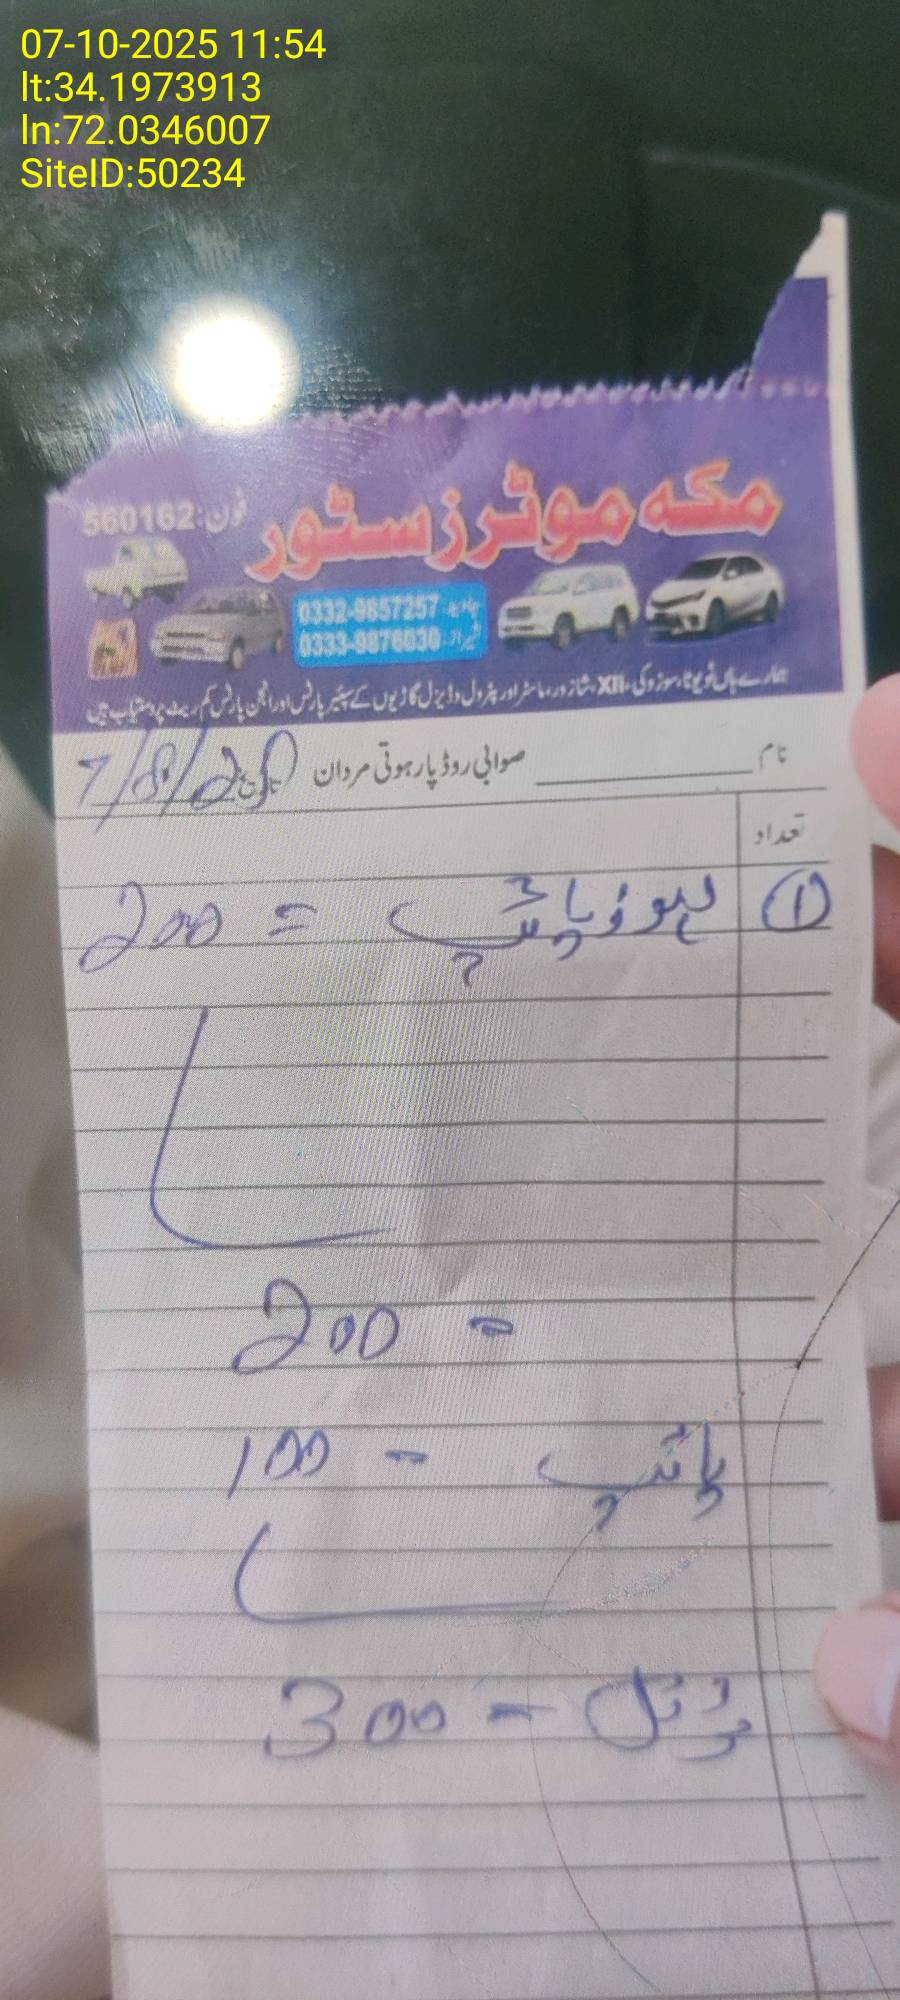 07-10-2025 11:54
lt:34.1973913
ln:72.0346007
SiteID:50234
مکہ موٹرز سٹور
فون: 560162
جاوید 0332-9857257
شیراز 0333-9876030
ہمارے ہاں ٹویوٹا، سوزوکی، XII، شازور، ماسٹر اور پٹرول و ڈیزل گاڑیوں کے سپیئر پارٹس اور انجن پارٹس کم ریٹ پر دستیاب ہیں
نام
صوابی روڈ پار ہوتی مردان
تاریخ 7/8/25
تعداد
① ہوز پائپ = 200
200 =
پائپ - 100
ٹوٹل - 300